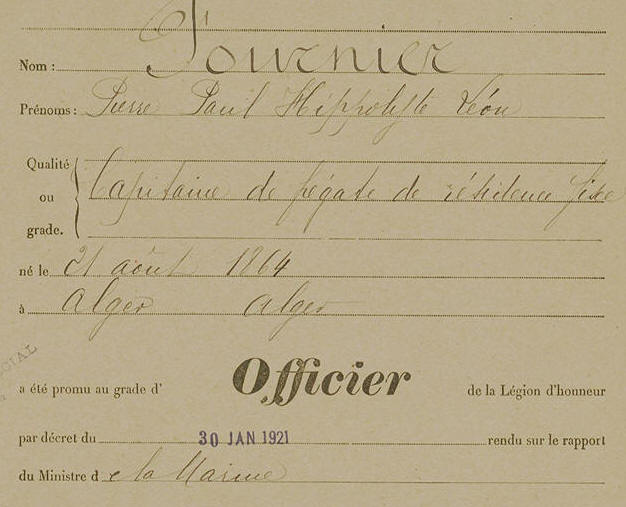 Nom : Fournier
Prénoms : Pierre Paul Hippolyte Léon
Qualité
ou
grade.
Capitaine de frégate de résidence fixe
né le 21 août 1864
à Alger Alger
a été promu au grade d' Officier de la Légion d'honneur
par décret du 30 JAN 1921 rendu sur le rapport
du Ministre de la Marine